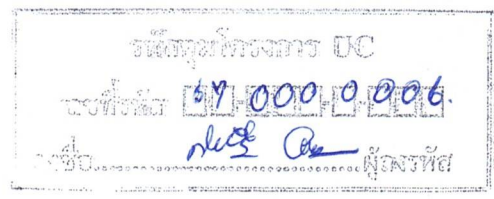 รหัสทุนโครงการ UC
เลขที่รหัส 57 000 0 006.
ลงชื่อ.......................ผู้ลงรหัส